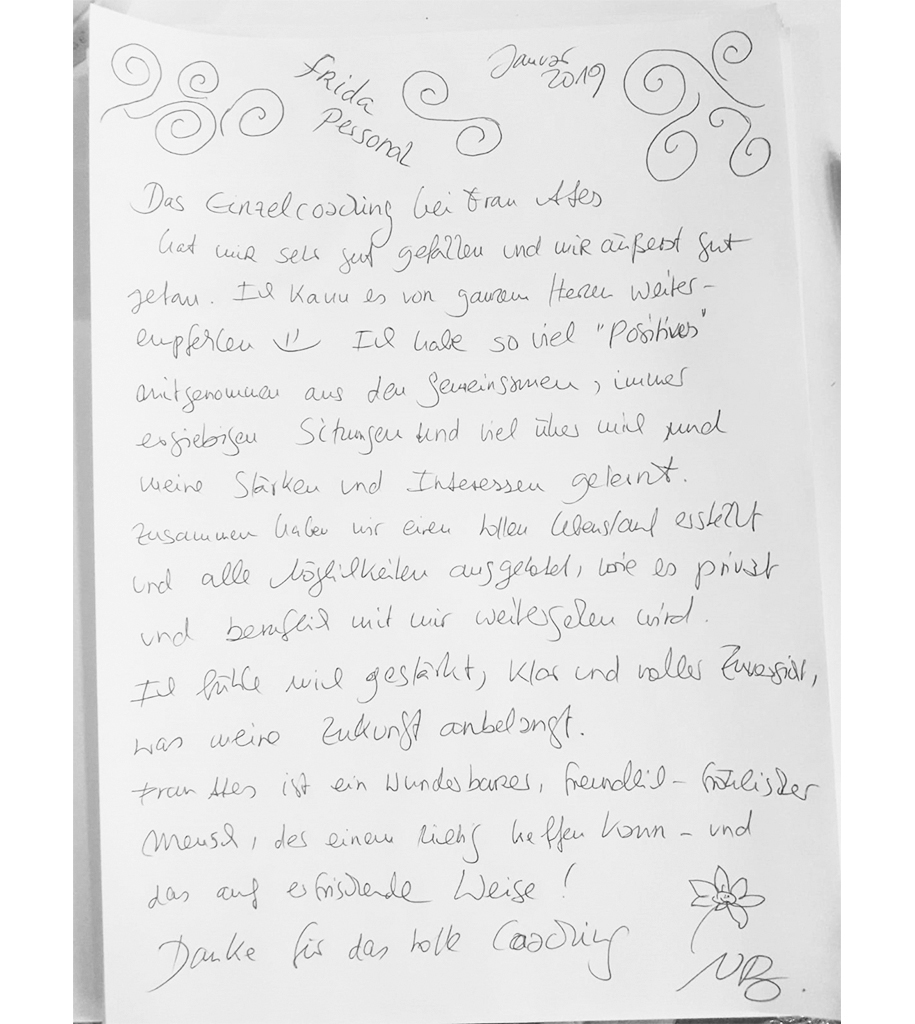 Frida
Personal
Januar
2019
Das Einzelcoaching bei Frau Ates
hat mir sehr gut gefallen und mir äußerst gut
getan. Ich kann es von ganzem Herzen weiter-
empfehlen Ich habe so viel "Positives"
mitgenommen aus den gemeinsamen, immer
ergiebigen Sitzungen und viel über mich und
meine Stärken und Interessen gelernt.
Zusammen haben wir einen tollen Lebenslauf erstellt
und alle Möglichkeiten ausgelotet, wie es privat
und beruflich mit mir weitergehen wird.
Ich fühle mich gestärkt, klar und voller Zuversicht,
was meine Zukunft anbelangt.
Frau Ates ist ein wunderbarer, freundlich-fröhlicher
Mensch, der einem richtig helfen kann - und
das auf erfrischende Weise!
Danke für das tolle Coaching